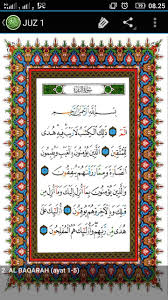 08.25
JUZ 1
سورة البقرة
بسم الله الرحمن الرحيم
الم ذلك الكتب لا ريب فيه هدى
للمتقين الذين يؤمنون بالغيب ويقيمون
الصلوة ومما رزقنهم ينفقون والذين
يؤمنون بما أنزل إليك وما أنزل من
قبلك وبالآخرة هم يوقنون أولئك على
هدى من ربهم وأولئك هم المفلحون
2. AL BAQARAH (ayat 1-5)